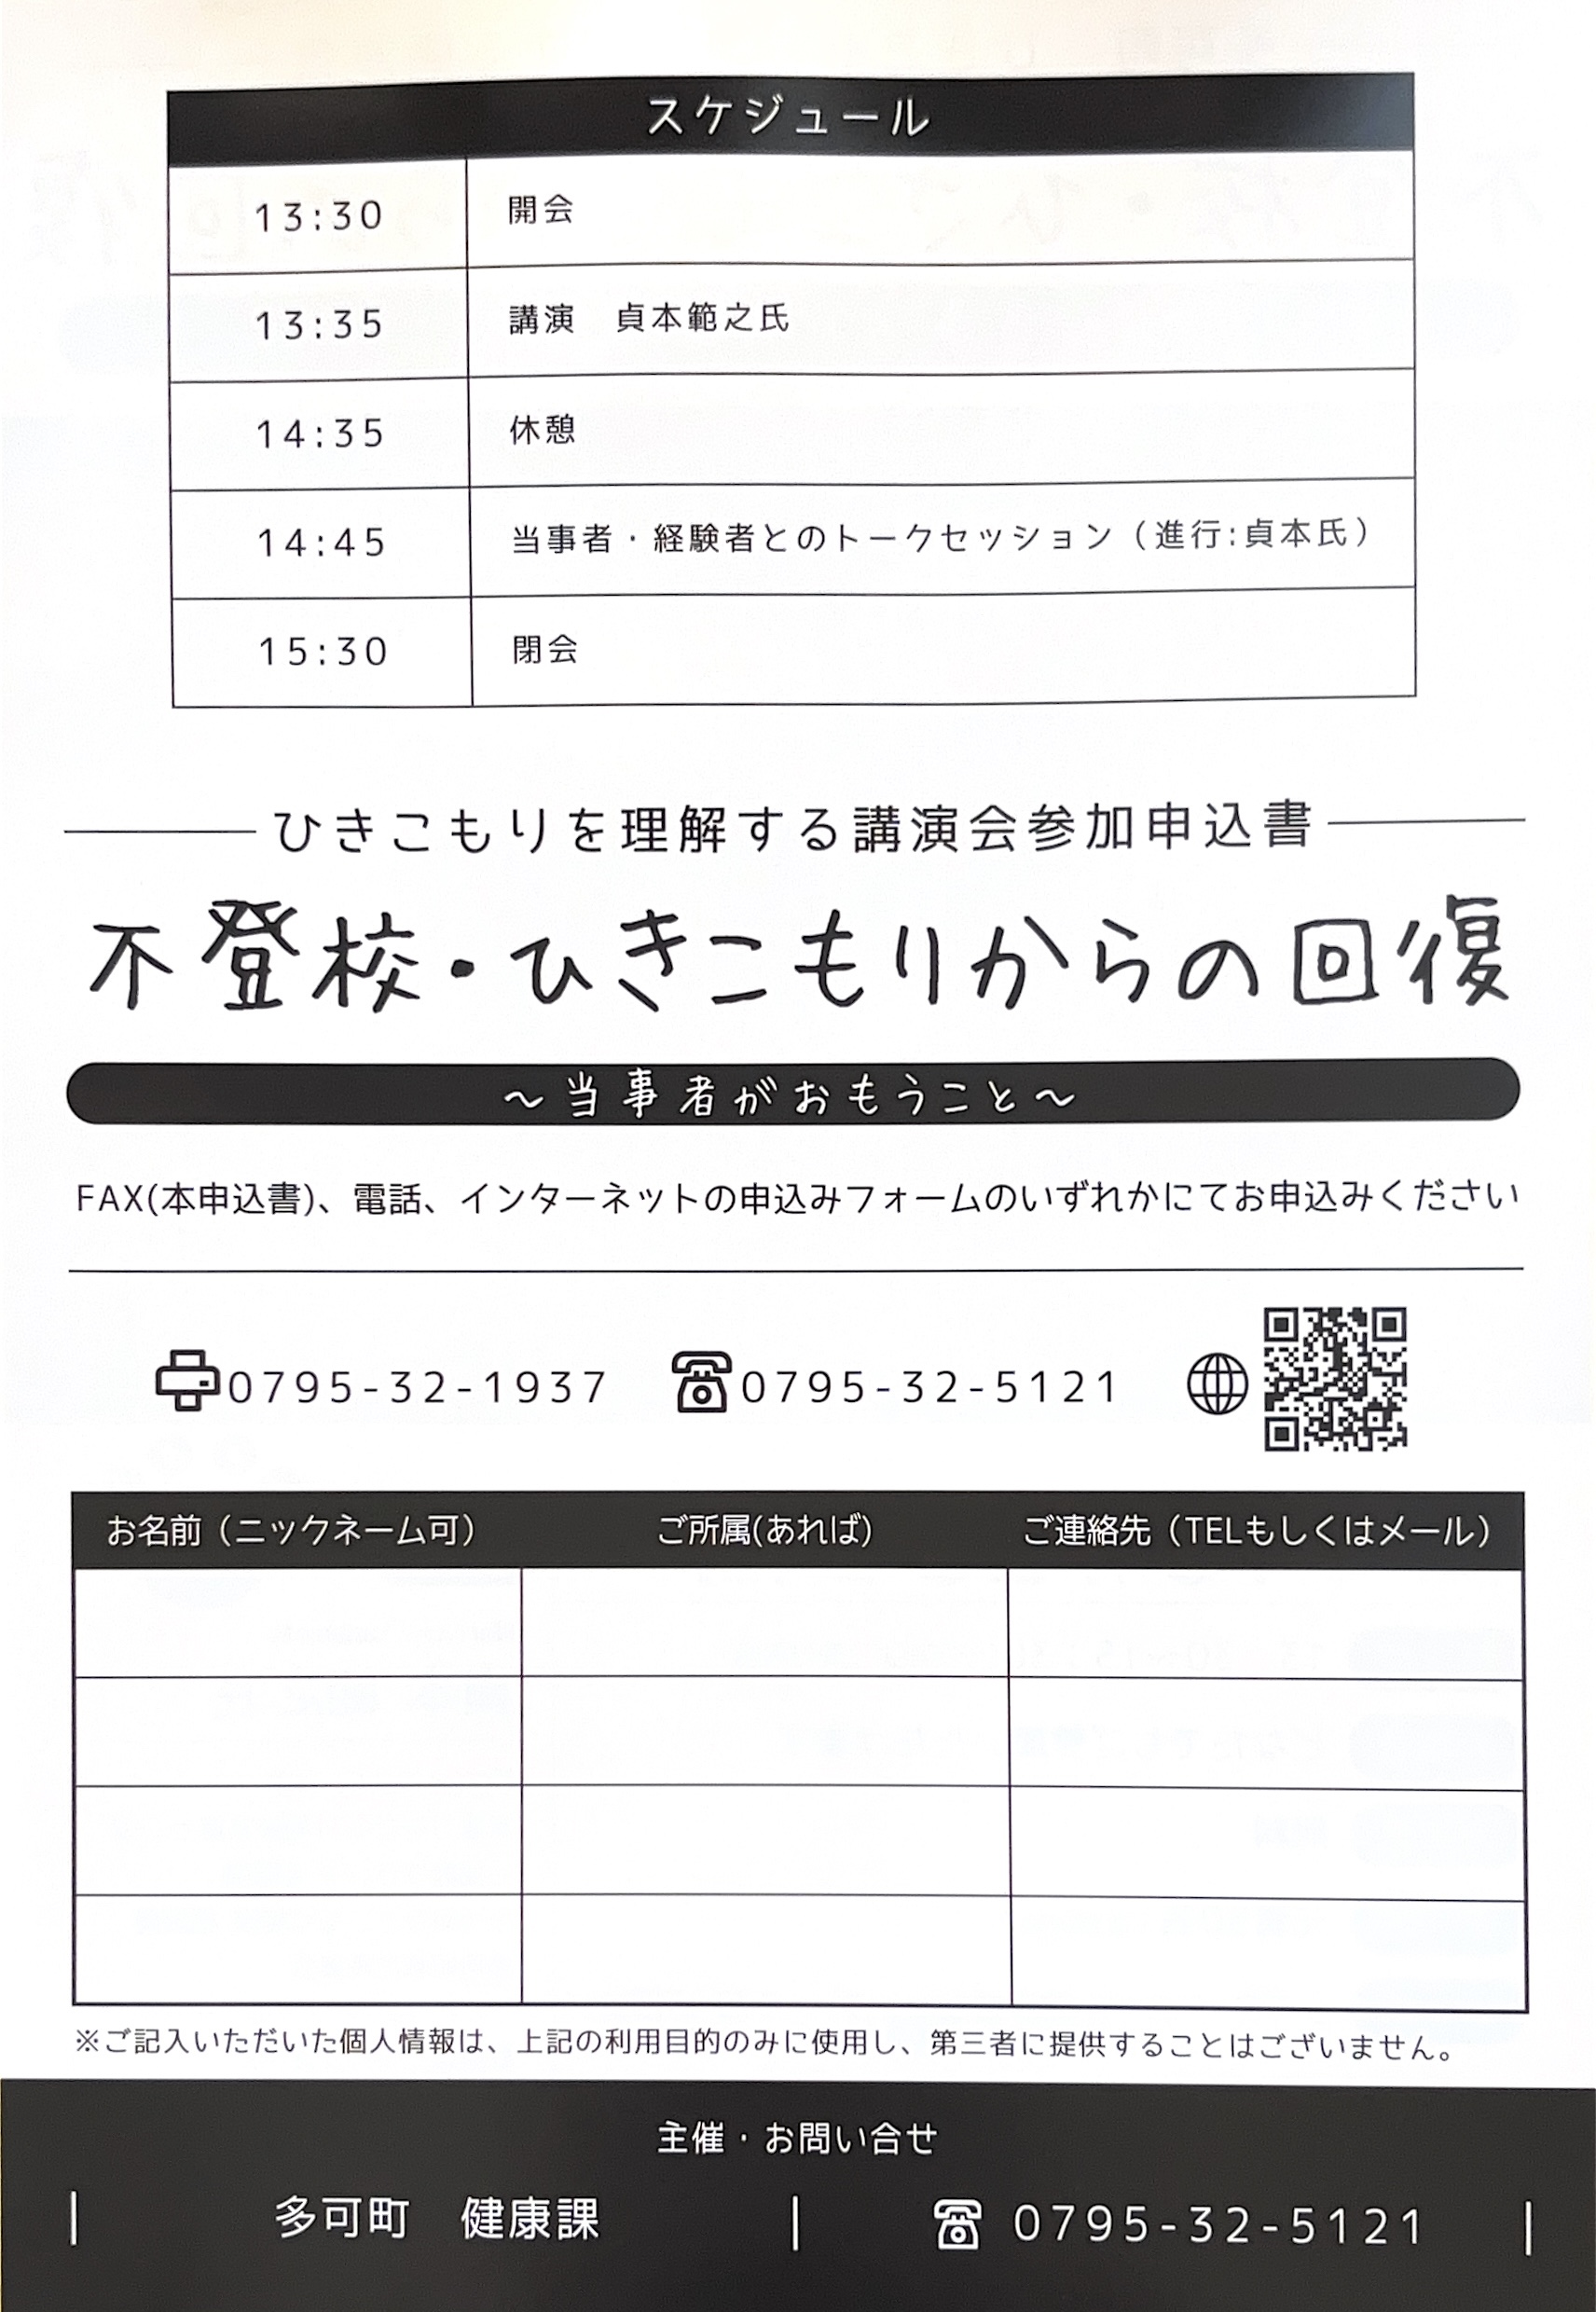 スケジュール
13:30 開会
13:35 講演　貞本範之氏
14:35 休憩
14:45 当事者・経験者とのトークセッション（進行:貞本氏）
15:30 閉会
ひきこもりを理解する講演会参加申込書
不登校・ひきこもりからの回復
～当事者がおもうこと～
FAX(本申込書)、電話、インターネットの申込みフォームのいずれかにてお申込みください
0795-32-1937 0795-32-5121
お名前（ニックネーム可） ご所属(あれば) ご連絡先（TELもしくはメール）
※ご記入いただいた個人情報は、上記の利用目的のみに使用し、第三者に提供することはございません。
主催・お問い合せ
多可町　健康課 0795-32-5121